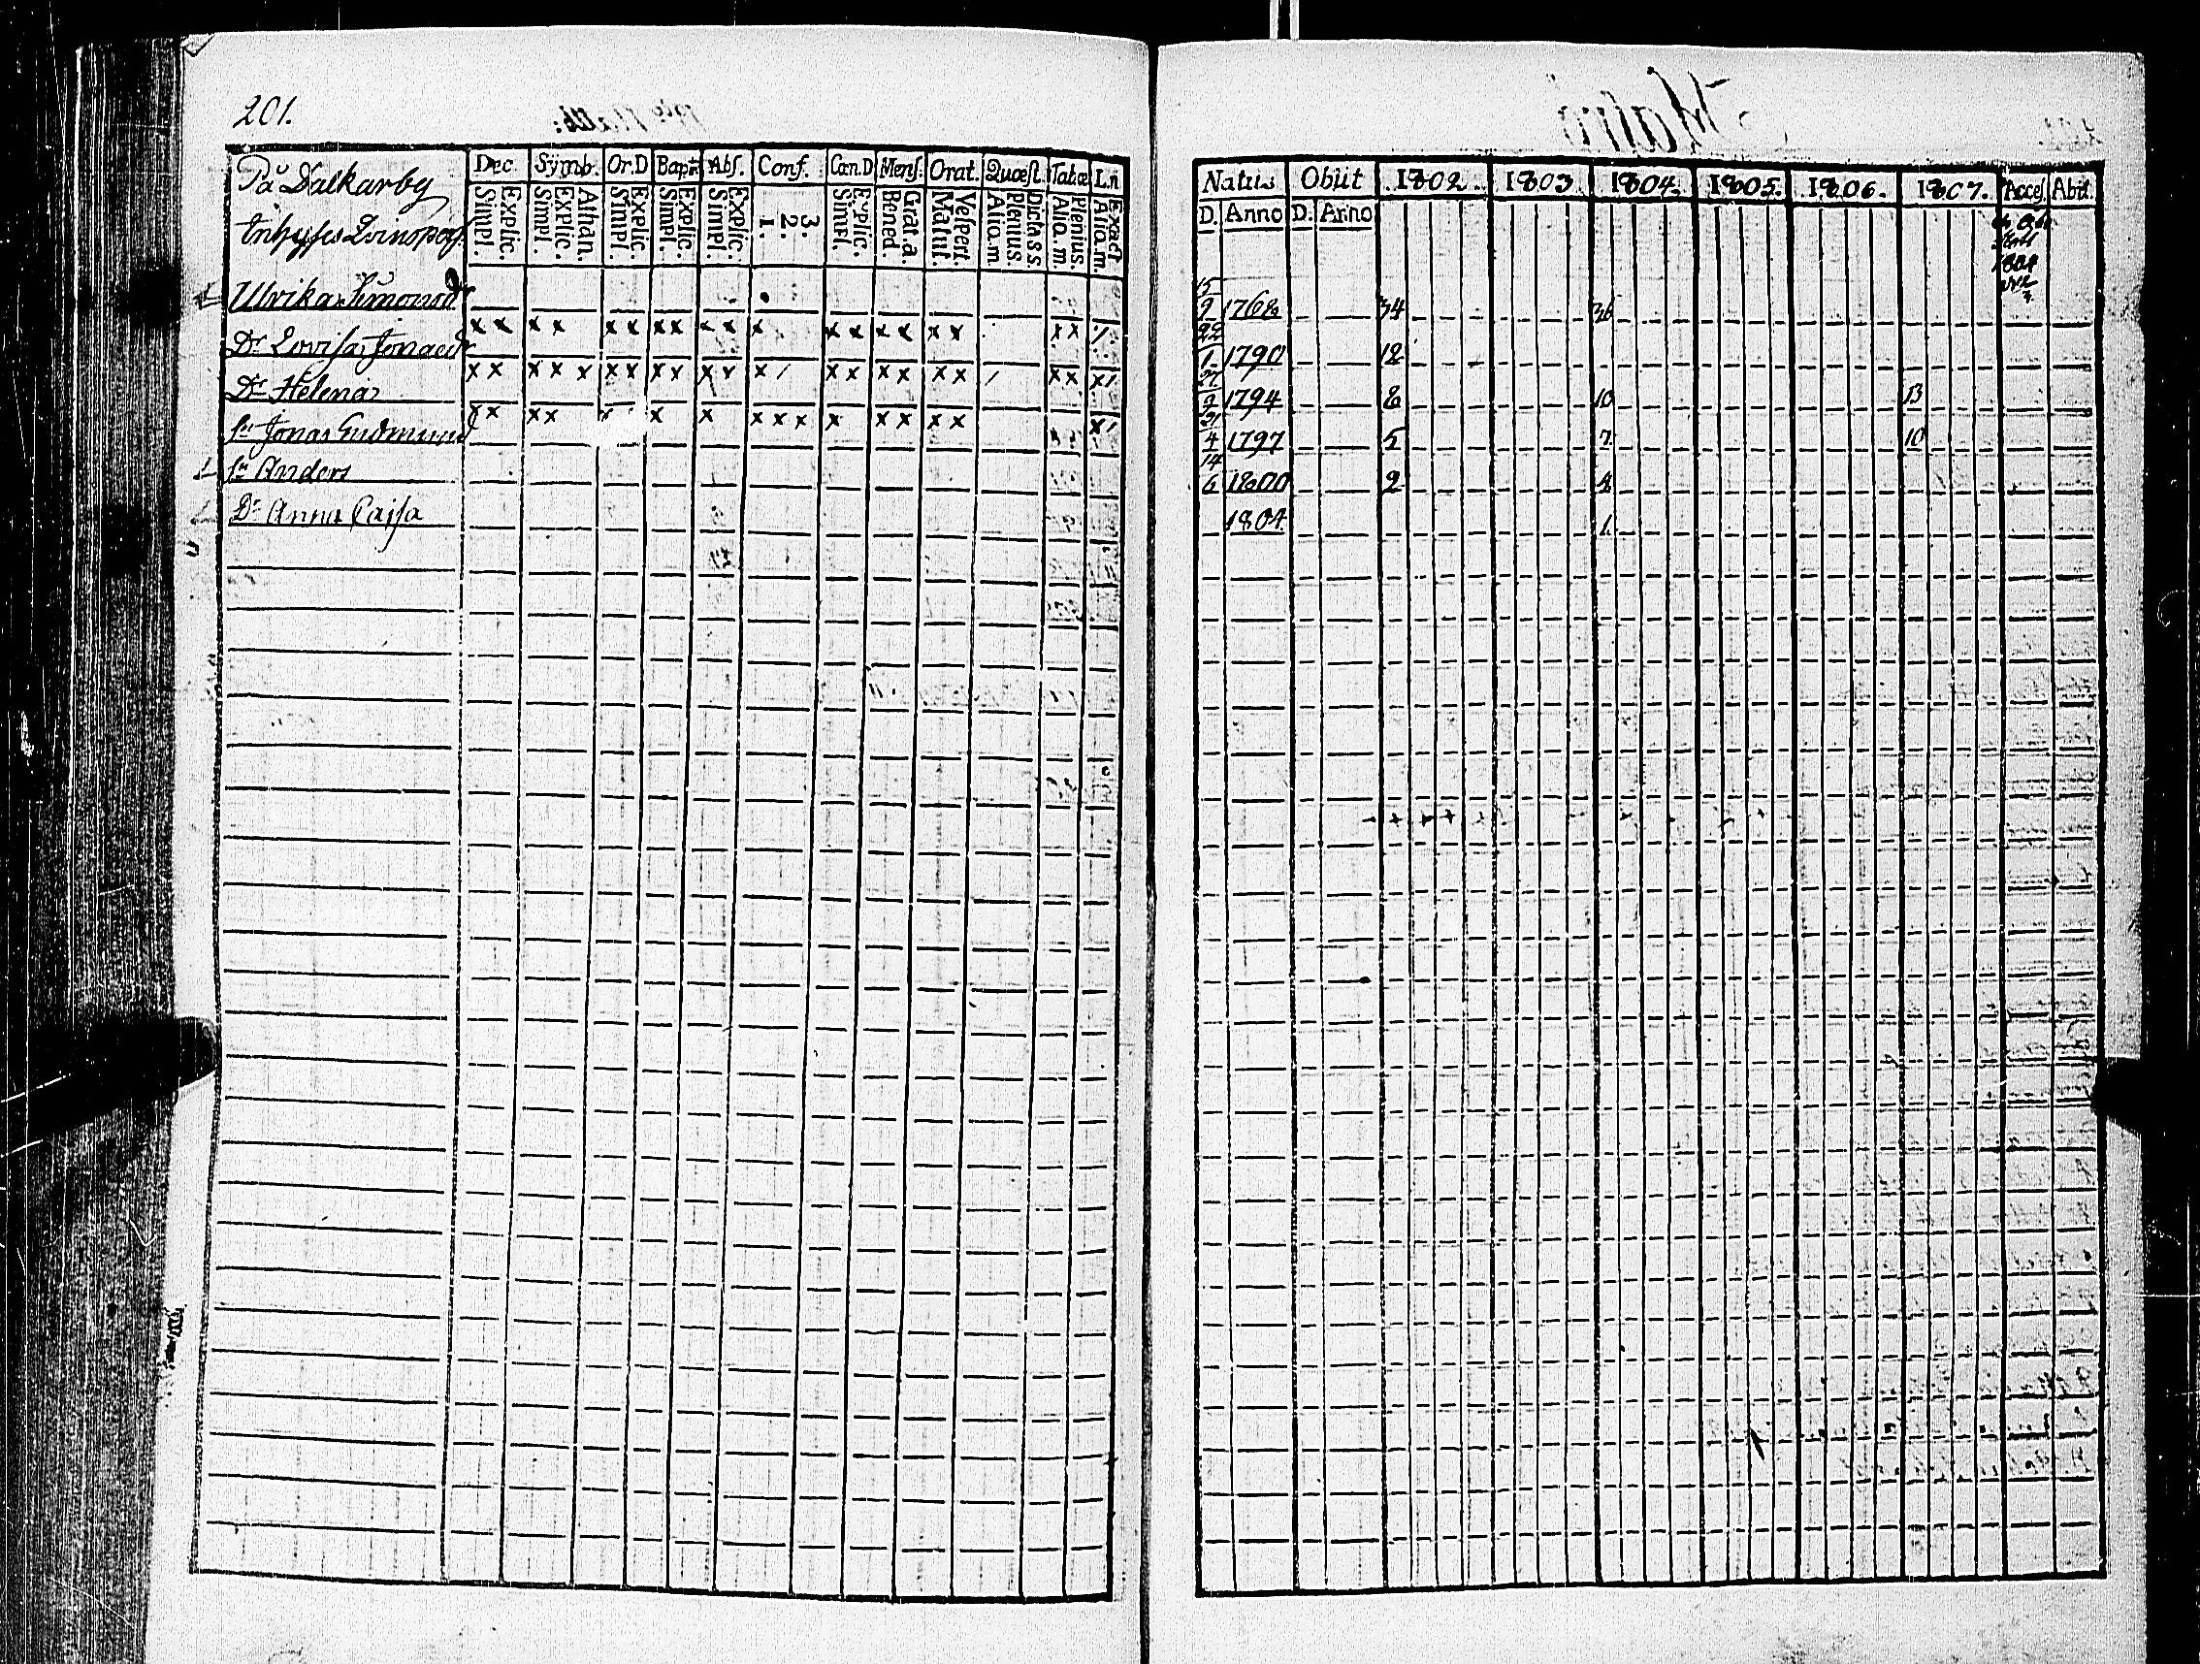 201.
På Dalkarby
Dec. Symb. Or.D Bapt. Abs. Conf. Can.D Mens. Orat. Quæst. Tab.œ Ln
Simpl. Explic. Simpl. Explic. Athan. Simpl. Explic. Simpl. Explic. Simpl. Explic. 1. 2. 3. Simpl. Explic. Bened. Grat.a. Matut. Vespert. Alio.m Plenius. Dicta s.s. Alio.m. Plenius. Alio.m. Exact
Ulrika Simonsdr
Dr Lovisa Jonædr x x x x x x x x x x x x x x x x x x x
Dr Helena x x x x x x x x x x x x / x x x x x x / x x x /
Sn Jonas Gudmund x x x x x x x x x x x x x x x x
Sn Anders
Dr Anna Cajsa
Natus Obiit 1802. 1803. 1804. 1805. 1806. 1807. Acces. Abit.
D. Anno D. Anno
1804
15/9 1768 34 36
22/1 1790 12
27/2 1794 8 10 13
21/4 1797 5 7 10
14/6 1800 2
1804 1